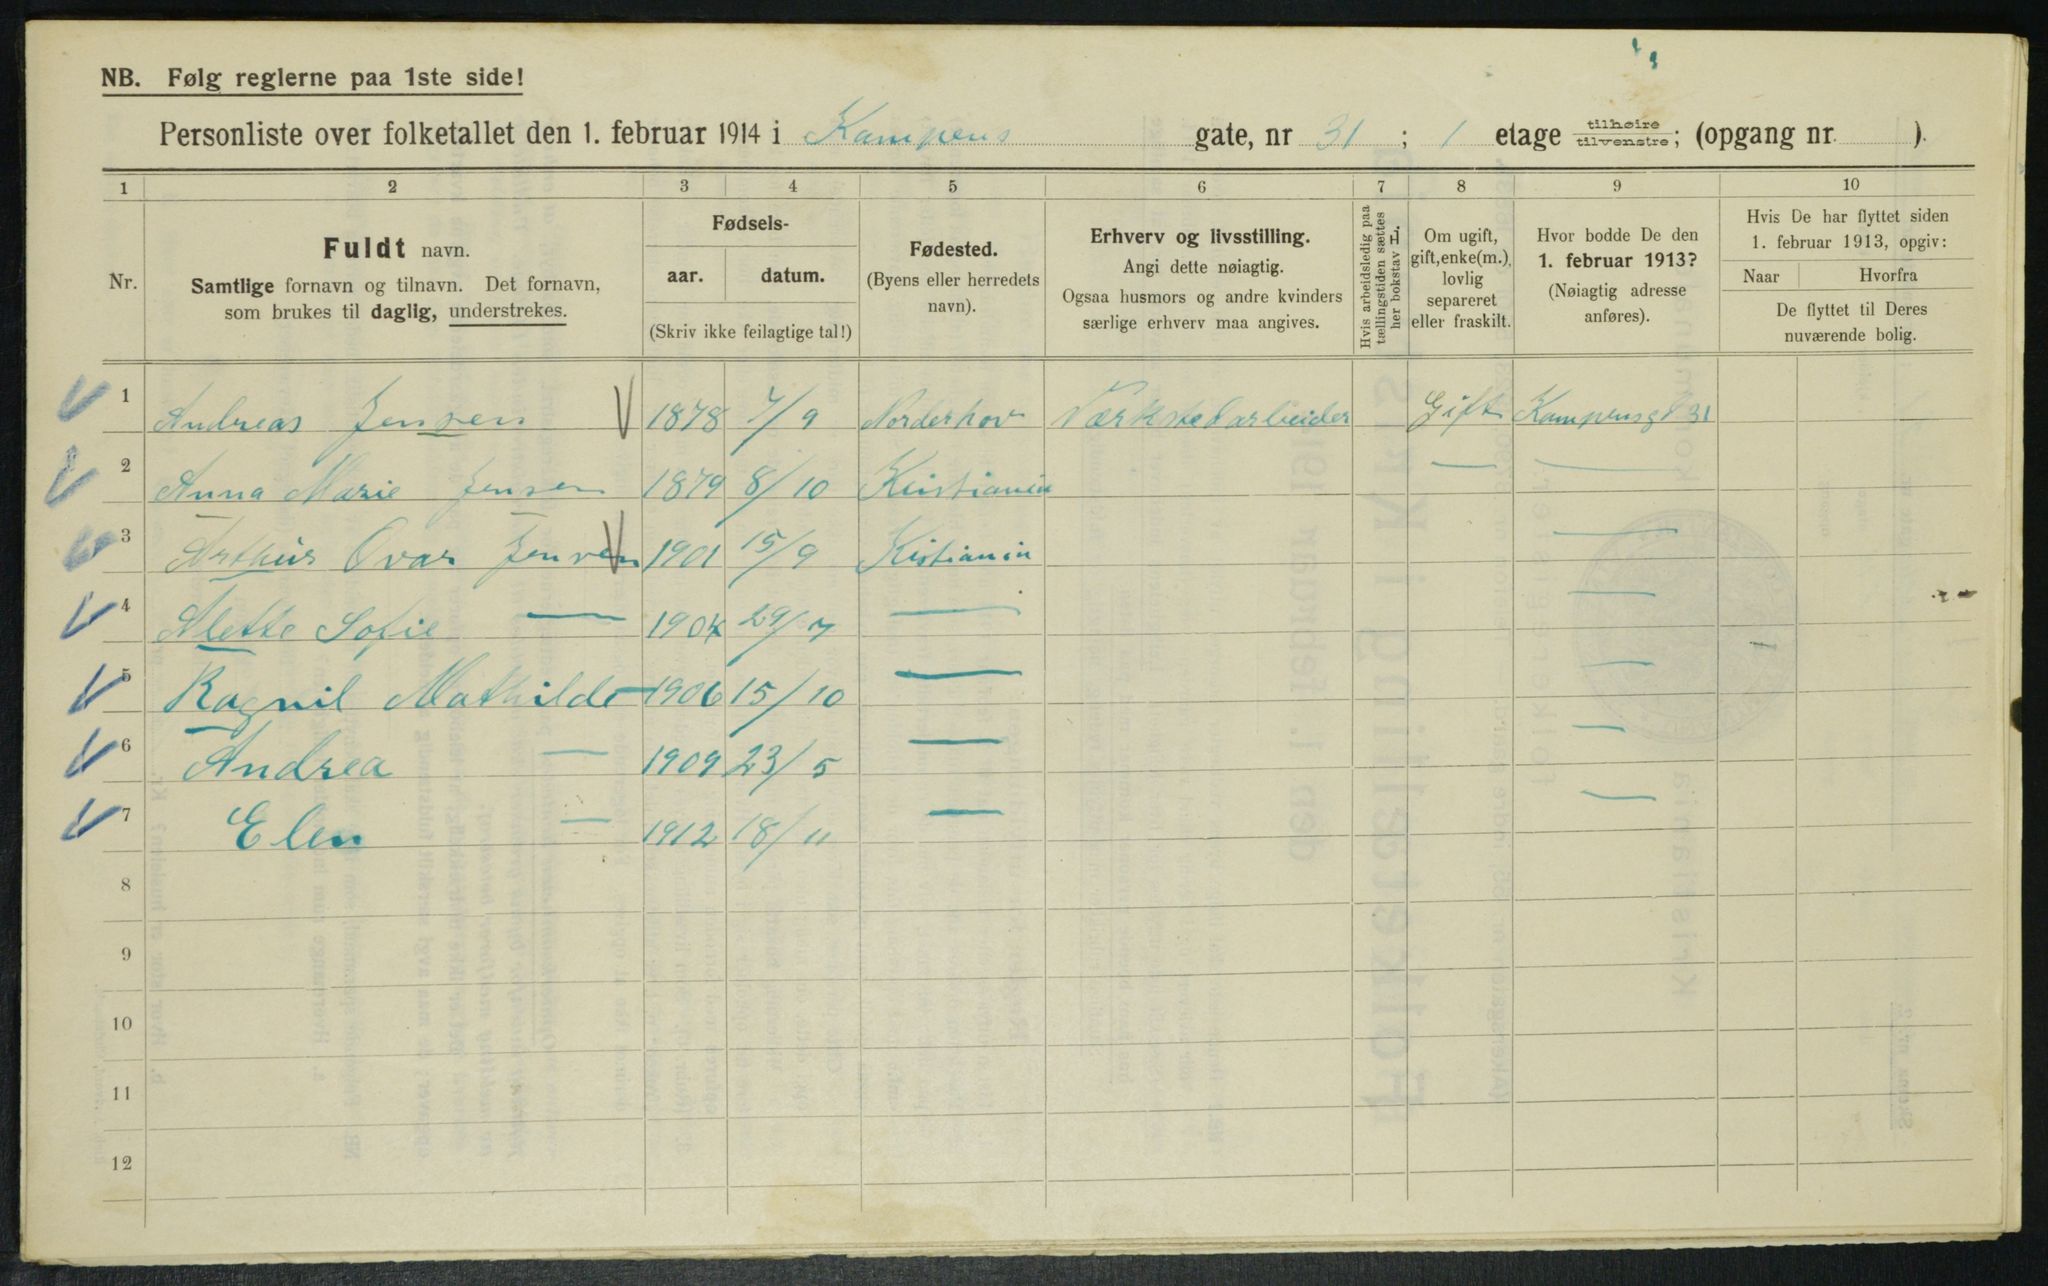 NB. Følg reglerne paa 1ste side!
Personliste over folketallet den 1. februar 1914 i Kampens gate, nr 31 ; 1 etage tilhøire/tilvenstre; (opgang nr. ).
1 2 3 4 5 6 7 8 9 10
Nr.
Fuldt navn.
Samtlige fornavn og tilnavn. Det fornavn,
som brukes til daglig, understrekes.
Fødsels-
aar. datum.
(Skriv ikke feilagtige tal!)
Fødested.
(Byens eller herredets
navn).
Erhverv og livsstilling.
Angi dette nøiagtig.
Ogsaa husmors og andre kvinders
særlige erhverv maa angives.
Hvis arbeidsledig paa
tællingstiden sættes
her bokstav L.
Om ugift,
gift, enke(m.),
lovlig
separeret
eller fraskilt.
Hvor bodde De den
1. februar 1913?
(Nøiagtig adresse
anføres).
Hvis De har flyttet siden
1. februar 1913, opgiv:
Naar Hvorfra
De flyttet til Deres
nuværende bolig.
1 Andreas Jensen 1878 7/9 Norderhov Værkstedarbeider Gift Kampensgt 31
2 Anna Marie Jensen 1879 8/10 Kristiania — —
3 Arthur Ovar Jensen 1901 15/9 Kistiania —
4 Alette Sofie — 1904 29/7 — —
5 Ragnil Mathilde — 1906 15/10 — —
6 Andrea — 1909 23/5 — —
7 Elen — 1912 18/11 — —
8
9
10
11
12